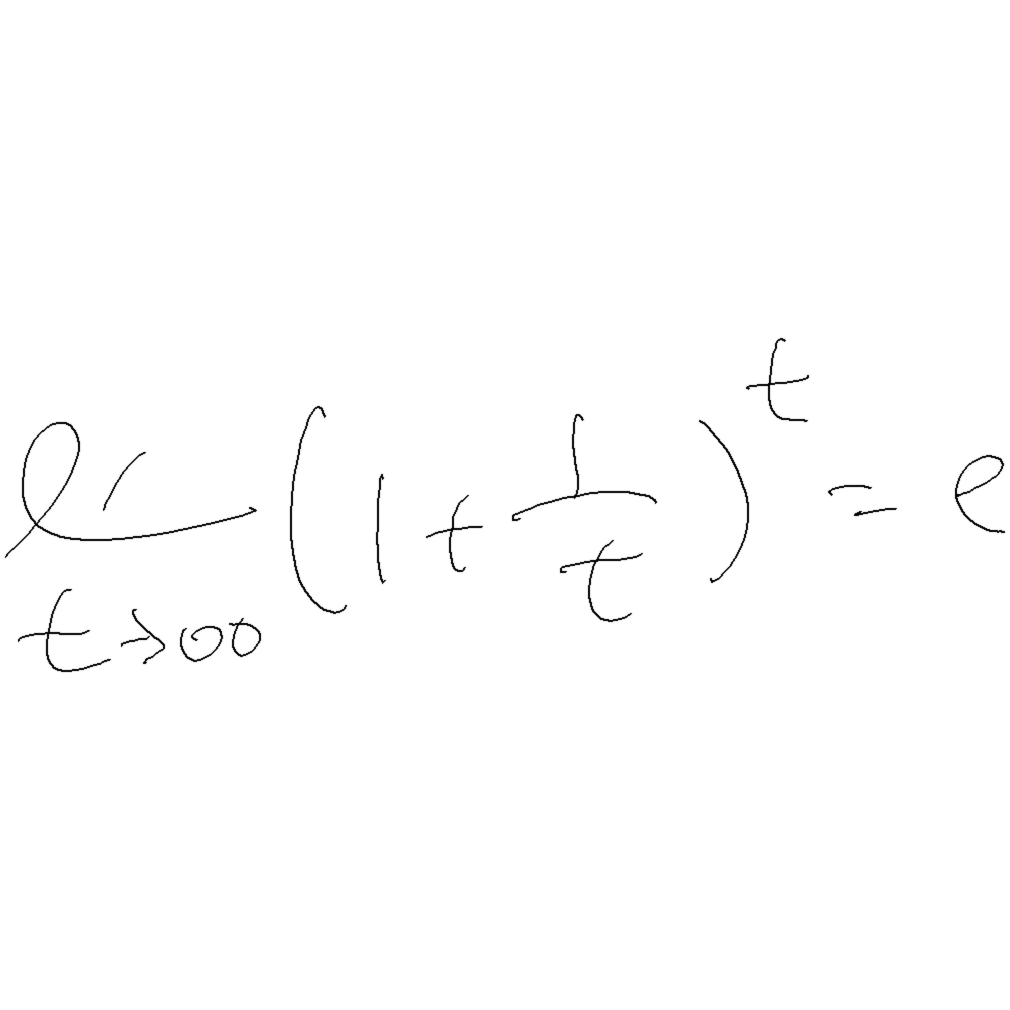 \lim_{t \to \infty} \left(1 + \frac{1}{t}\right)^t = e